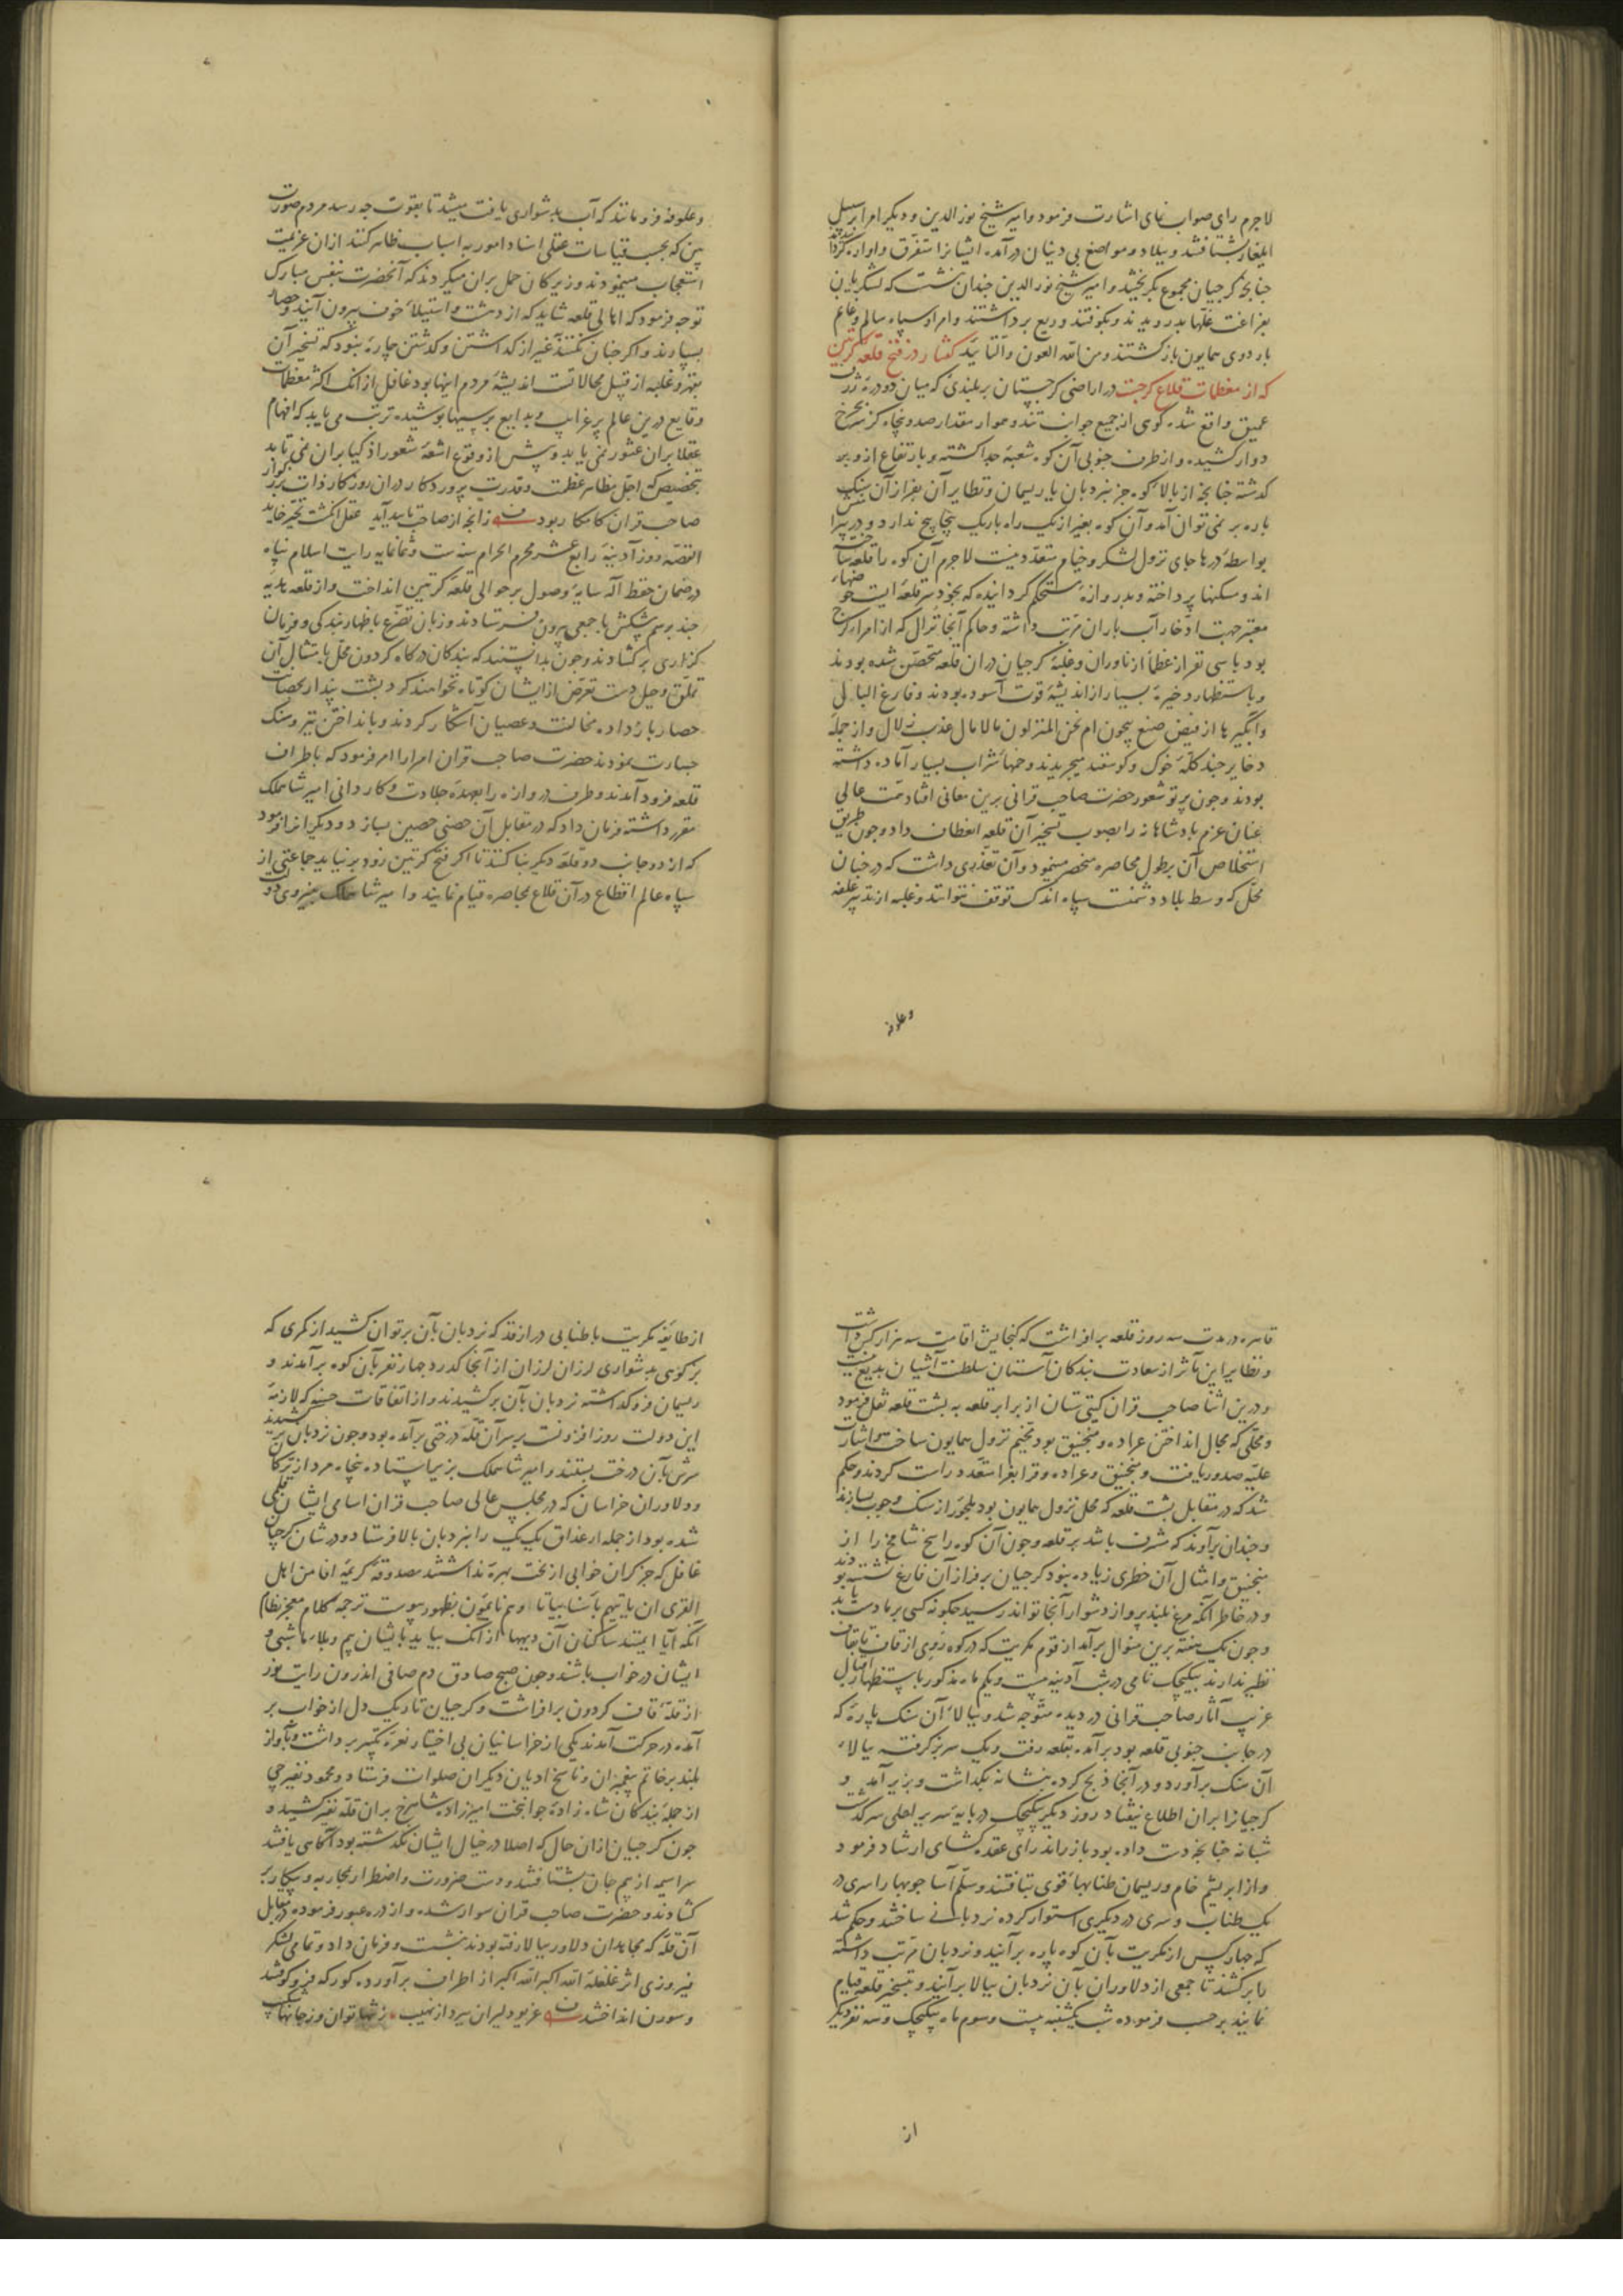 لاجرم رای صواب نمای اشارت فرمود و امیر شیخ نور الدین و دیکر امرا برسبیل
ایلغار بشتافتند و ببلاد و مواضع بی دینان درآمده ایشانرا متفرق و آواره کردانیدند
جنانجه کرجیان مجموع بکریختند و امیر شیخ نور الدین جندان بنشست که لشکریان
بفراغت غلها بدرویدند و بکوفتند و ریع برداشتند و امرا و سپاه سالم و غانم
باردوی همایون بازکشتند و من الله العون والتایید کفتار در فتح قلعه کرتین
که از معظمات قلاع کرجست در اراضی کرجستان بر بلندی که میان دو دره ژرف
عمیق واقع شده کوهی از جمیع جوانب تند و هموار مقدار صد و پنجاه کز بچرخ
دوار کشیده و از طرف جنوبی آن کوه شعبه جدا کشته و بارتفاع ازو بر
کذشته جنانجه از بالاء کوه جز بنردبان یا ریسمان و نظایر آن بفراز آن سنک
باره بر نمی توان آمد و آن کوه بغیر از یک راه باریک پیچاپیچ ندارد و در پیرامنش
بواسطه درها جای نزول لشکر و خیام متعدد نیست لاجرم آن کوه را قلعه ساخته
اند و مسکنها پرداخته و بدروازه مستحکم کردانیده که بخود سر قلعه ایست و حوضهاء
معتبر جهت ادخار آب باران مرتب داشته و حاکم آنجا نزال که از امراء کرج
بود با سی نفر از عظماء ازناوران و غلبه کرجیان در آن قلعه متحصن شده بودند
و باستظهار ذخیره بسیار از اندیشه قوت آسوده بودند و فارغ البال
و آبگیرها از فیض صنع بیچون ام نحن المنزلون مالامال عذب زلال و از جمله
ذخایر جند کله خوک و کوسفند میجریدند و خمهاء شراب بسیار آماده داشته
بودند و جون پرتو شعور حضرت صاحب قرانی برین معانی افتاد همت عالی
عنان عزم بادشاهانه را بصوب تسخیر آن قلعه انعطاف داد و جون طریق
استخلاص آن بطول محاصره منحصر مینمود و آن تعذری داشت که در جنان
محل که وسط بلاد دشمنست سپاه اندک توقف نتوانند و غلبه از تدبیر علفه
وعلوفه
وعلوفه فرومانند که آب بدشواری یافت میشد تا بقوت جه رسد مردم صورت
بین که بحسب قیاسات عقلی اسناد امور به اسباب ظاهر کنند از آن عزیمت
استعجاب مینمودند و زیرکان حمل بر آن میکردند که آنحضرت بنفس مبارک
توجه فرمود که اهالی قلعه شاید که از دهشت و استیلاء خوف بیرون آیند و حصار
بسپارند و اکر جنان نکنند غیر از کذاشتن و کذشتن جاره نبود که تسخیر آن
بقهر و غلبه از قبیل محالاتست اندیشه مردم اینها بود غافل از آنک اکثر معظمات
وقایع درین عالم پر غرایب و بدایع بر سببها پوشیده ترتب می یابد که افهام
عقلا بر آن عثور نمی یابد و پیش از وقوع اشعه شعور اذکیا بر آن نمی تابد
بتخصیص که اجل مظاهر عظمت و قدرت پروردکار در آن روزکار ذات بزرکوار
صاحب قران کامکار بود زانجه از صاحب تایید آید عقل انکشت تحیر خاید
القصه روز آدینه رابع عشر محرم الحرام سنه ست و ثمانمایه رایت اسلام پناه
در ضمان حفظ اله سایه وصول بر حوالی قلعه کرتین انداخت و از قلعه هدیه
جند برسم پیشکش با جمعی بیرون فرستادند و زبان تضرع باظهار بندکی و فرمان
کزاری برکشادند و جون بدانستند که بندکان درکاه کردون محل بامثال آن
تملق و حیل دست تعرض از ایشان کوتاه نخواهند کرد پشت پندار بحصانت
حصار بازداده مخالفت و عصیان آشکار کردند و بانداختن تیر و سنک
جسارت نمودند حضرت صاحب قران امرا را امر فرمود که باطراف
قلعه فرود آمدند و طرف دروازه را بعهده جلادت و کاردانی امیر شاهملک
مقرر داشته فرمان داد که در مقابل آن حصنی حصین بسازد و دیکر امرا فرمود
که از دو جانب دو قلعه دیکر بنا کنند تا اکر فتح کرتین زود برنیاید جماعتی از
سپاه عالم اقطاع در آن قلاع بمحاصره قیام نمایند و امیر شاهملک بنیروی دولت
قاهره در مدت سه روز قلعه برافراشت که کنجایش اقامت سه هزار کس داشت
و نظایر این مآثر از سعادت بندکان آستان سلطنت آشیان بدیع نیست
و درین اثنا صاحب قران کیتی ستان از برابر قلعه به پشت قلعه نقل فرمود
و محلی که مجال انداختن عراده و منجنیق بود مخیم نزول همایون ساخت و اشارت
علیه صدور یافت و منجنیق و عراده و قرابغرا متعدد راست کردند و حکم
شد که در مقابل پشت قلعه که محل نزول همایون بود ملجور از سنک و جوب بسازند
و جندان برآورند که مشرف باشد بر قلعه و جون آن کوه راسخ شامخ را از
منجنیق و امثال آن خطری زیاده نبود کرجیان بر فراز آن فارغ نشسته بودند
و در خاطر آنکه مرغ بلند پرواز دشوار آنجا تواند رسید جکونه کسی بر ما دست یابد
و جون یک هفته برین منوال برآمد از قوم مکریت که در کوه روی از قاف تا قاف
نظیر ندارند بیکیجک نامی در شب آدینه بیست و یکم ماه مذکور باستظهار اقبال
غریب آثار صاحب قرانی در دیده متوجه شد و ببالاء آن سنک پاره که
در جانب جنوبی قلعه بود برآمده بقلعه رفت و یک سر بز کرفته ببالاء
آن سنک برآورد و در آنجا ذبح کرده بنشانه بکذاشت و بزیر آمد و
کرجیانرا بر آن اطلاع نیفتاد روز دیکر بیکیجک در پایه سریر اعلی سرکذشت
شبانه جنانجه دست داده بود باز راند رای عقده کشای ارشاد فرمود
و از ابریشم خام و ریسمان طنابهاء قوی بتافتند و سلم آسا جوبها را سری در
یک طناب و سری در دیکری استوار کرده نردبانی ساختند و حکم شد
که جهار کس از مکریت بآن کوه پاره برآیند و نردبان مرتب داشته
بابرکشند تا جمعی از دلاوران بآن نردبان ببالا برآیند و بتسخیر قلعه قیام
نمایند بر حسب فرموده شب یکشنبه بیست و سوم ماه بیکیجک و سه نفر دیکر
از
از طایفه مکریت با طنابی دراز قد که نردبان بآن برتوان کشید از کمری که
بز کوهی بدشواری لرزان لرزان از آنجا کذرد جهار نفر بآن کوه برآمدند و
ریسمان فروکذاشته نردبان بآن برکشیدند و از اتفاقات حسنه که لازمه
این دولت روز افزونست بر سر آن قله درختی برآمده بود و جون نردبان برکشیدند
سرش بآن درخت ببستند و امیر شاهملک بزیر ایستاده پنجاه مرد از ترکان
و دلاوران خراسان که در مجلس عالی صاحب قران اسامی ایشان قلمی
شده بود از جمله ارغداق یک یک را بنردبان بالا فرستاد و در شان کرجیان
غافل که جز کران خوابی از بخت بهره نداشتند مصدوقه کریمه افامن اهل
القری ان یاتیهم باسنا بیاتا و هم نایمون بظهور پیوست ترجمه کلام معجز نظام
آنکه آیا ایمنند ساکنان آن دیهها از آنک بیاید بایشان بیم و بلاء ما شبی و
ایشان در خواب باشند و جون صبح صادق دم صافی اندرون رایت نور
از قله قاف کردون برافراشت و کرجیان تاریک دل از خواب بر
آمده در حرکت آمدند یکی از خراسانیان بی اختیار نعره تکبیر برداشت و بآواز
بلند بر خاتم پیغمبران و ناسخ ادیان دیکران صلوات فرستاد و محمود نفیرجی
از جمله بندکان شاه زاده جوانبخت امیرزاده شاهرخ بر آن قله نفیر کشید و
جون کرجیان از آن حال که اصلا در خیال ایشان نکذشته بود آکاهی یافتند
سراسیمه از بیم جان بشتافتند و دست ضرورت و اضطرار بمحاربه و پیکار بر
کشادند و حضرت صاحب قران سوار شده و از دره عبور فرموده در مقابل
آن قله که مجاهدان دلاور ببالا رفته بودند بنشست و فرمان داد و تمامی لشکر
فیروزی اثر غلغله الله اکبر الله اکبر از اطراف برآورده کورکه فروکوفتند
و سورن انداختند غریو دلیران ببرد از نهیب ز تنها توان و ز جانها شکیب